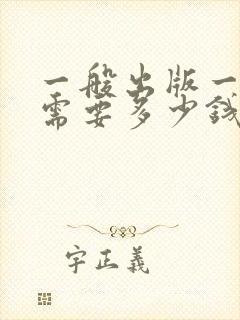 一般出版一
需要多少钱
字正義